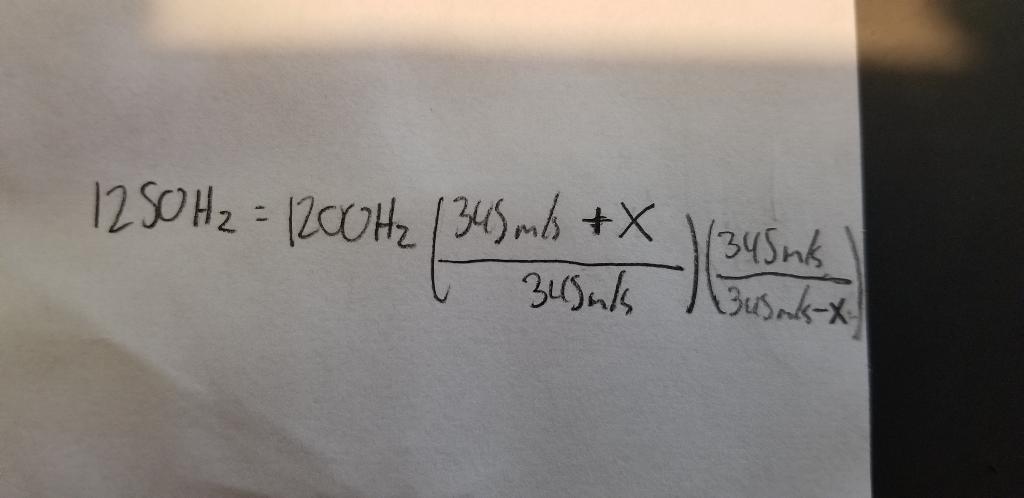 1250Hz = 1200Hz (345m/s + X / 345m/s) (345m/s / 345m/s - X)